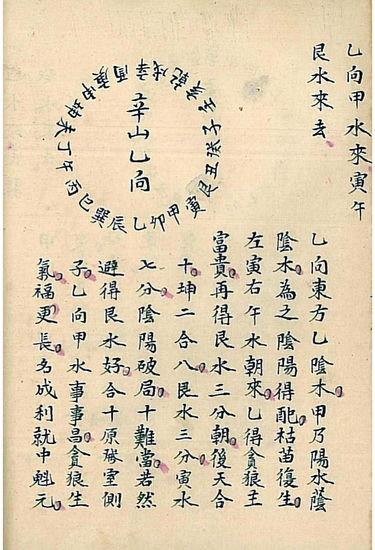 乙向甲水來寅午
艮水來去
壬子癸丑艮寅甲卯乙辰巽巳丙午丁未坤申庚酉辛戌乾亥
辛山乙向
乙向東方乙陰木。甲乃陽水蔭
陰木。為之陰陽得配。枯苗復生。
左寅右午水朝來。乙得貪狼主
富貴。再得艮水三分朝。後天合
十。坤二合八。艮水三分。寅水
七分陰陽破局。十難當。若然
避得艮水好。合十原勝室側
子。乙向甲水事事昌。貪狼生
氣。福更長。名成利就中魁元。